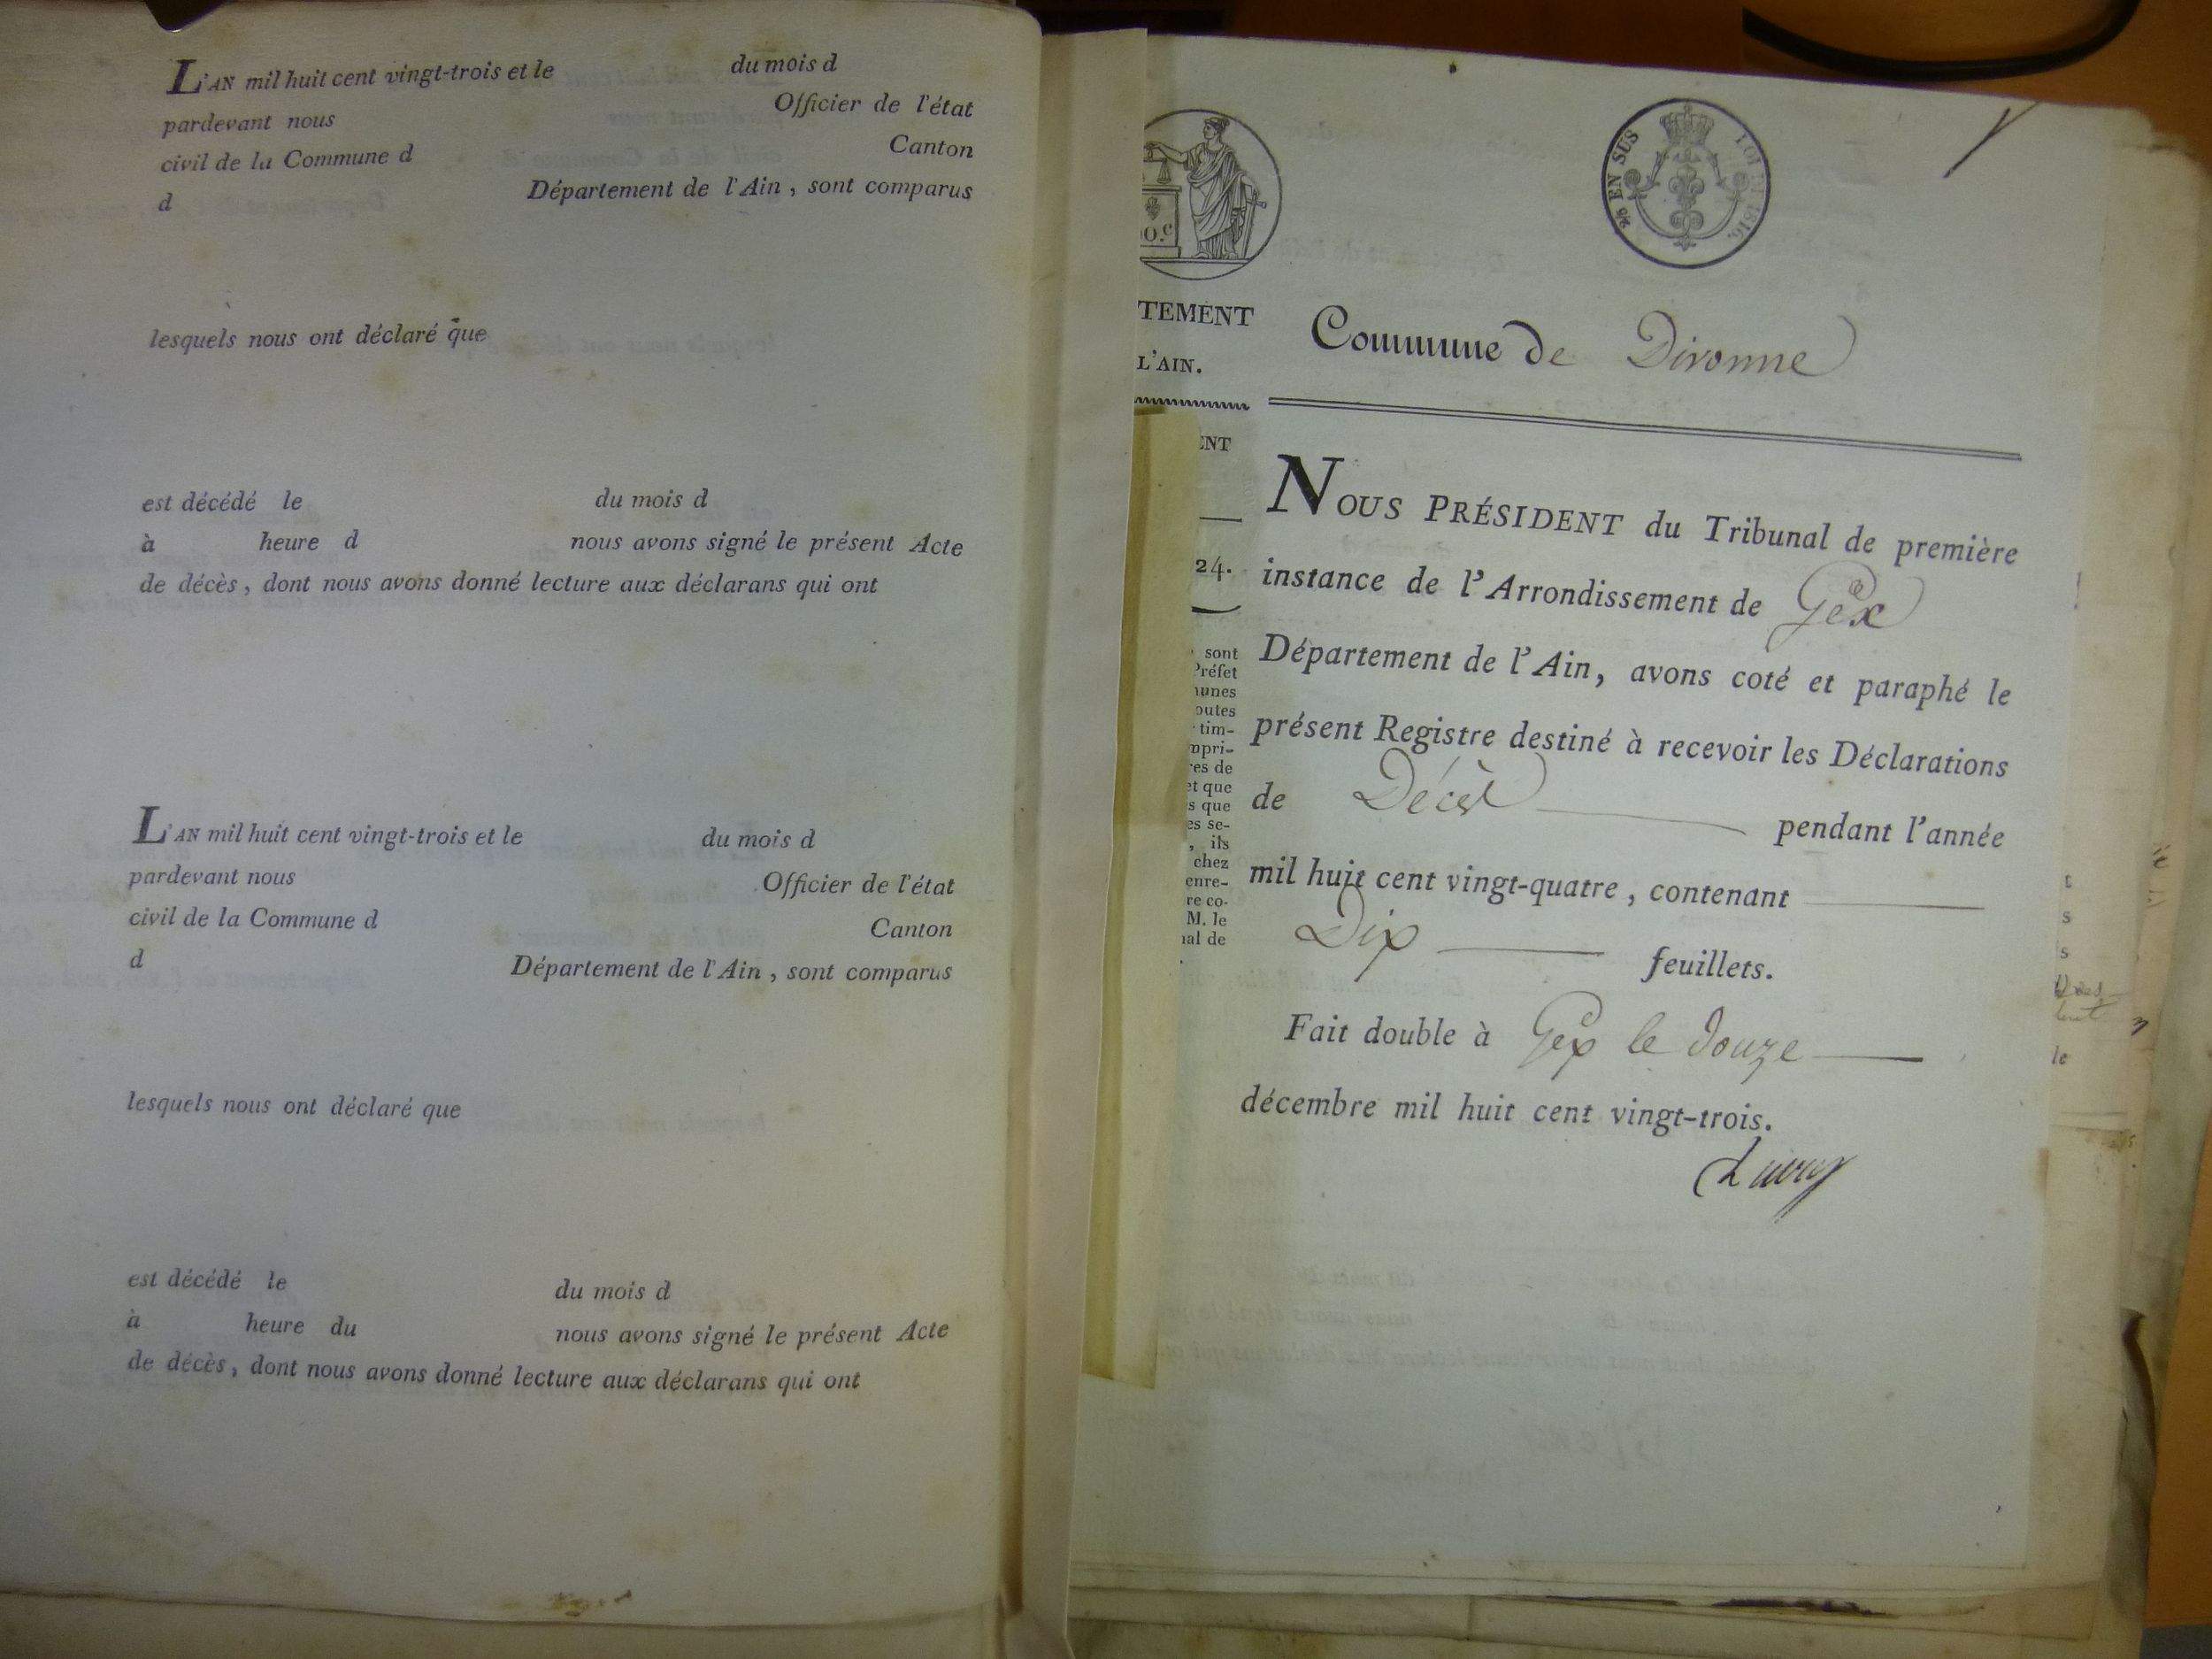 L'AN mil huit cent vingt-trois et le du mois d
pardevant nous Officier de l'état
civil de la Commune d Canton
d Département de l'Ain, sont comparus
lesquels nous ont déclaré que
est décédé le du mois d
à heure d nous avons signé le présent Acte
de décès, dont nous avons donné lecture aux déclarans qui ont
L'AN mil huit cent vingt-trois et le du mois d
pardevant nous Officier de l'état
civil de la Commune d Canton
d Département de l'Ain, sont comparus
lesquels nous ont déclaré que
est décédé le du mois d
à heure du nous avons signé le présent Acte
de décès, dont nous avons donné lecture aux déclarans qui ont
EN SUS LOI 1816.
00.c
TEMENT
L'AIN.
Commune de Divonne
ENT
24.
sont
Préfet
munes
outes
tim-
mpri-
res de
et que
s que
es se-
, ils
chez
enre-
re co-
M. le
nal de
NOUS PRÉSIDENT du Tribunal de première
instance de l'Arrondissement de Gex
Département de l'Ain, avons coté et paraphé le
présent Registre destiné à recevoir les Déclarations
de Décès pendant l'année
mil huit cent vingt-quatre, contenant
Dix feuillets.
Fait double à Gex le douze
décembre mil huit cent vingt-trois.
s
s
le